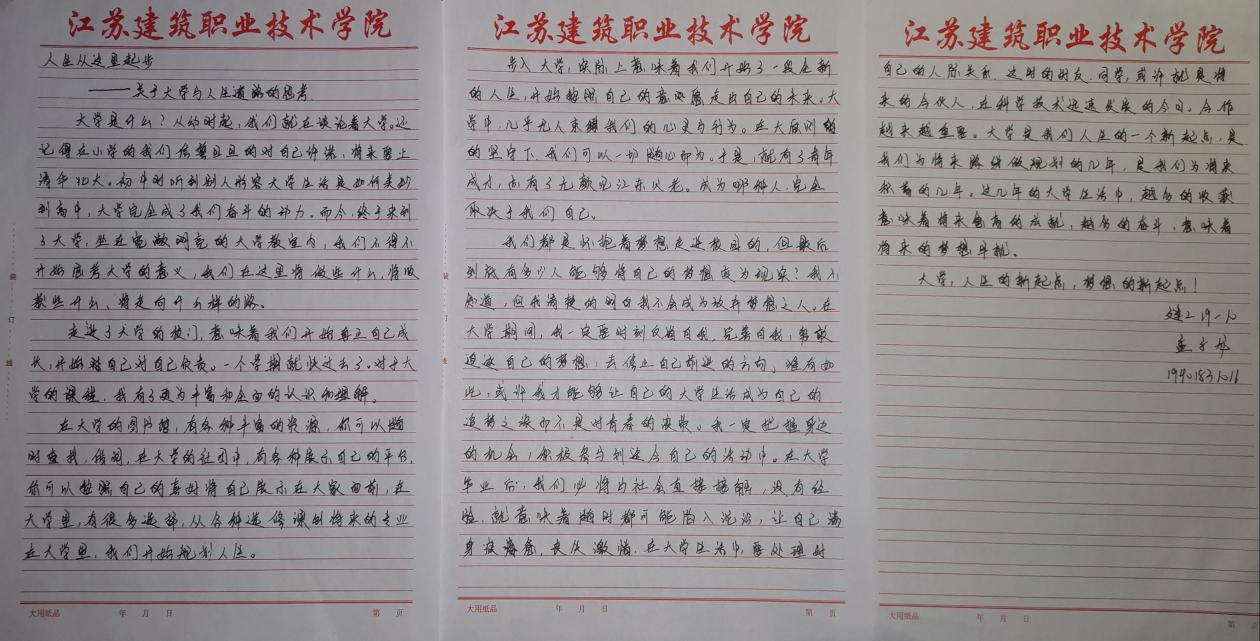 江苏建筑职业技术学院
人生从这里起步
——关于大学与人生道路的思考
大学是什么？从幼时起，我们就在谈论着大学。还
记得在小学的我们信誓旦旦的对自己许诺，将来要上
清华北大。初中时听到别人形容大学生活是如何美妙
到高中，大学完全成了我们奋斗的动力。而今，终于来到
了大学，坐在宽敞明亮的大学教室内，我们不得不
开始思考大学的意义，我们在这里将做些什么，将收
获些什么、将走向什么样的路。
走进了大学的校门，意味着我们开始真正自己成
长，开始将自己对自己负责。一个学期就快过去了，对于大
学的课程，我有了更为丰富和全面的认识和理解。
在大学的图书馆，有各种丰富的资源，你可以随
时查找，借阅，在大学的社团中，有各种展示自己的平台，
你可以按照自己的喜好将自己展示在大家面前，在
大学里，有很多选择，从各种选修课到将来的专业
在大学里，我们开始规划人生。
大用纸品 年 月 日 第 页
装
订
线
江苏建筑职业技术学院
步入大学，实际上意味着我们开始了一段全新
的人生，开始按照自己的意愿走出自己的未来。大
学中，几乎无人束缚我们的心灵与行为。在大原则
的坚守下，我们可以一切随心而为。于是，就有了青年
成才，亦有了无颜见江东父老。成为哪种人，完全
取决于我们自己。
我们都是怀抱着梦想走进校园的，但最后
到底有多少人能够将自己的梦想变为现实？我不
知道，但我清楚的明白我不会成为放弃梦想之人。在
大学期间，我一定要时刻反省自我，完善自我，勇敢
追逐自己的梦想，去修正自己前进的方向，唯有如
此，或许我才能够让自己的大学生活成为自己的
追梦之旅而不是对青春的浪费。我一定把握身边
的机会，积极参与到适合自己的活动中。在大学
毕业后，我们必将与社会直接接触，没有经
验，就意味着随时都可能陷入泥沼，让自己满
身疲惫，丧失激情，在大学生活中，要处理好
大用纸品 年 月 日 第 页
装
订
线
江苏建筑职业技术学院
自己的人际关系，这时的好友、同学，或许就是将
来的合伙人，在科学技术迅速发展的今日，合作
越来越重要。大学是我们人生的一个新起点，是
我们为将来路线做规划的几年，是我们为将来
积蓄的几年。这几年的大学生活中，越多的收获
意味着将来愈高的成就，越多的奋斗，意味着
将来的梦想早就。
大学，人生的新起点，梦想的新起点！
建工19-10
19401831016
大用纸品 年 月 日 第